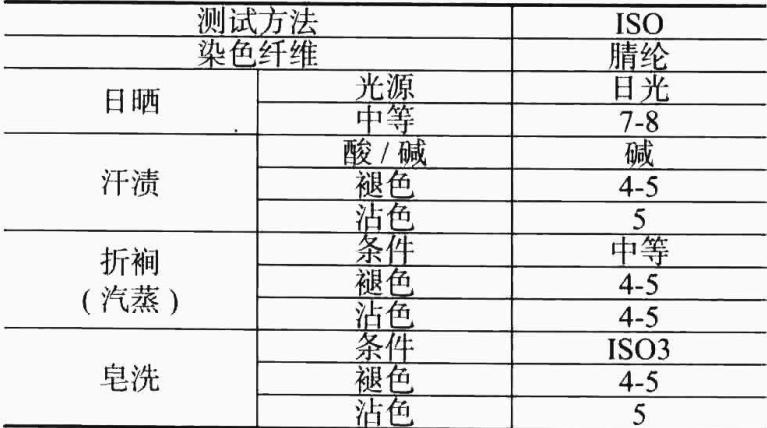 测试方法 ISO
染色纤维 腈纶
日晒 光源 日光
中等 7-8
汗渍 酸 / 碱 碱
褪色 4-5
沾色 5
折裥 (汽蒸) 条件 中等
褪色 4-5
沾色 4-5
皂洗 条件 ISO3
褪色 4-5
沾色 5